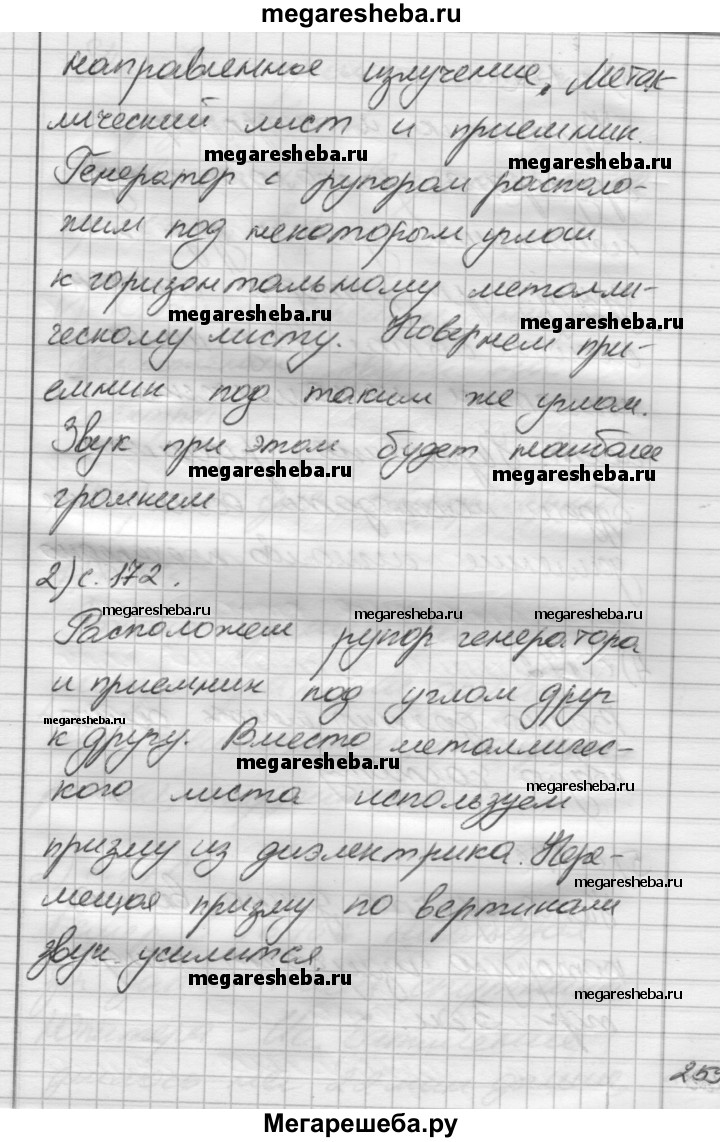 megaresheba.ru
направленное излучение. Метал
лический лист и приемник.
megaresheba.ru
megaresheba.ru
Генератор с рупором располо-
жим под некоторым углом
к горизонтальному металли-
megaresheba.ru
megaresheba.ru
ческому листу. Повернем при-
емник под таким же углом.
Звук при этом будет наиболее
megaresheba.ru
megaresheba.ru
громким
2) с. 172.
megaresheba.ru
megaresheba.ru
megaresheba.ru
Расположем рупор генератора
и приемник под углом друг
megaresheba.ru
к другу. Вместо металличес-
megaresheba.ru
кого листа используем
megaresheba.ru
призму из диэлектрика. Пере-
megaresheba.ru
мещая призму по вертикали
звук усилится.
megaresheba.ru
megaresheba.ru
253
Мегарешеба.ру